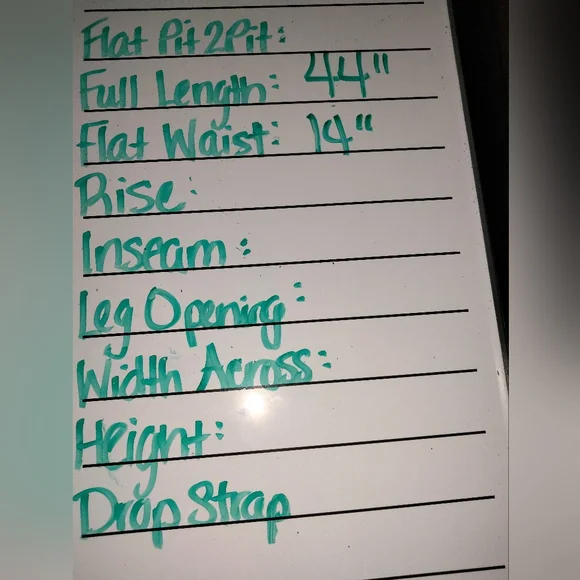 Flat Pit2Pit:
Full Length: 44"
Flat Waist: 14"
Rise:
Inseam:
Leg Opening:
Width Across:
Height:
Drop Strap